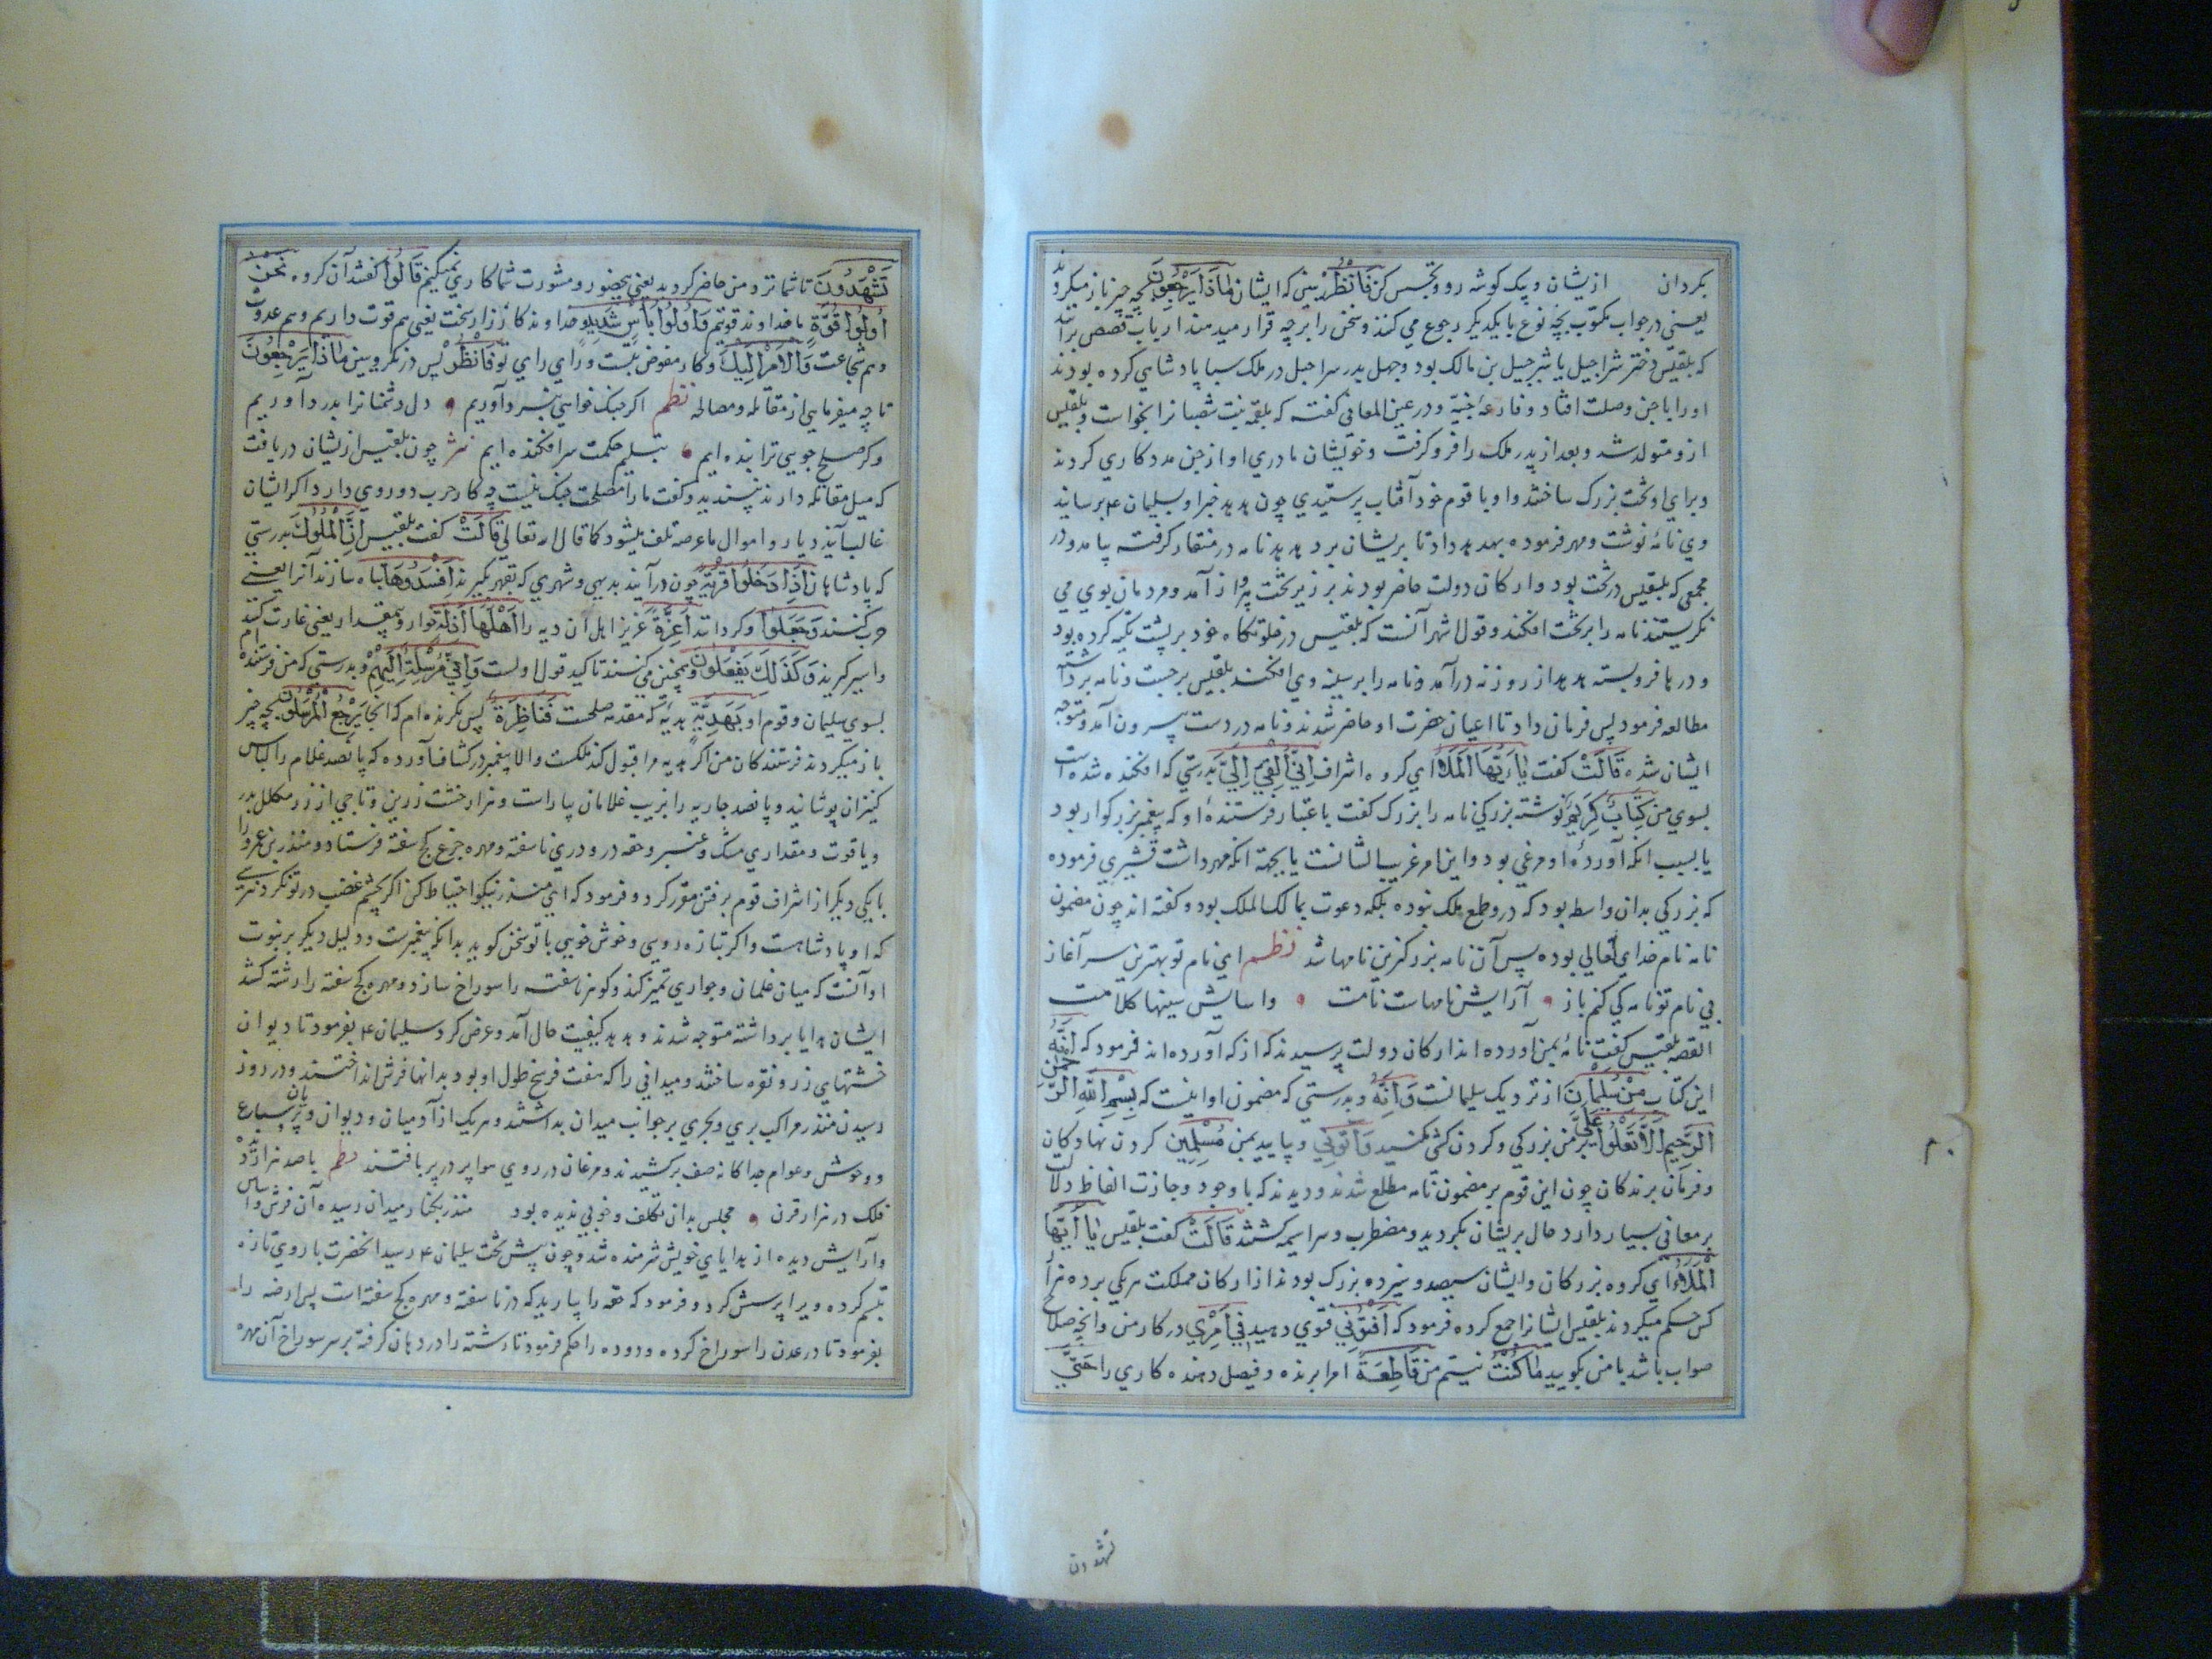 بکردان از یشان و بیک کوشه رو و تجسس کن فَانظُرْ ببین که ایشان مَاذَا یَرْجِعُونَ بچه چیز باز میکردند
یعنی در جواب مکتوب بچه نوع با یکدیکر رجوع می کنند و سخن را بر چه قرار میدهند ارباب قصص برانند
که بلقیس دختر شراحیل یا شرحبیل بن مالک بود و چهل پدر سراحیل در ملک سبا پادشاهی کرده بودند
او را با جن وصلت افتاد و فارعهٔ جنیّه و در عین المعانی کفته که بلقمه بنت شیصبا نرا بخواست و بلقیس
ازو متولد شد و بعد از پدر ملک را فرو کرفت و خویشان مادری او از جن مددکاری کردند
و برای او تخت بزرک ساختند و او با قوم خود آفتاب پرستیدی چون هدهد خبر او بسلیمان ع برسانید
وی نامهٔ نوشت و مهر فرموده بهدهد داد تا بریشان برد هدهد نامه در منقار کرفته بیامد و در
مجمعی که بلقیس بر تخت بود و ارکان دولت حاضر بودند بر زیر تخت پرواز آمد و مردمان بوی می
نکریستند نامه را بر تخت افکند و قول اشهر آنست که بلقیس در خلوتکاه خود بر پشت تکیه کرده بود
و درها فرو بسته هدهد از روزنه درآمد و نامه را بر سینهٔ وی افکند بلقیس برجست و نامه برداشته
مطالعه فرمود پس فرمان داد تا اعیان حضرت او حاضر شدند و نامه در دست بیرون آمد و متوجه
ایشان شده قَالَتْ کفت یَا أَیُّهَا الْمَلَأُ ای کروه اشراف إِنِّی أُلْقِیَ إِلَیَّ بدرستی که افکنده شده است
بسوی من کِتَابٌ کَرِیمٌ نوشته بزرکی نامه را بزرک کفت باعتبار فرستندهٔ او که پیغمبر بزرکوار بود
یا بسبب انکه آوردهٔ او مرغی بود و این امر غریب الشانست یا بجهة انکه مهر داشت قشیری فرموده
که بزرکی بدان واسطه بود که درو طمع ملک نبوده بلکه دعوت بمالک الملک بود و کفته اند چون مضمون
نامه نام خدای تعالی بوده پس آن نامه بزرکترین نامها باشد نظم ای نام تو بهترین سرآغاز
بی نام تو نامه کی کنم باز آرایش نامهاست نامت واسایش سینها کلامت
القصه بلقیس کفت نامهٔ بمن آورده اند ارکان دولت پرسیدند که از که آورده اند فرمود که إِنَّهُ
این کتاب مِن سُلَیْمَانَ از نزدیک سلیمانست وَإِنَّهُ و بدرستی که مضمون او اینست که بِسْمِ اللهِ الرَّحْمٰنِ
الرَّحِیمِ أَلَّا تَعْلُوا عَلَیَّ بر من بزرکی و کردن کشی مکنید وَأْتُونِی و بیایید بمن مُسْلِمِینَ کردن نهادکان
و فرمان برندکان چون این قوم بر مضمون نامه مطلع شدند و دیدند که با وجود وجازت الفاظ دلالت
بر معانی بسیار دارد حال بریشان بکردید و مضطرب و سراسیمه کشتند قَالَتْ کفت بلقیس یَا أَیُّهَا
الْمَلَأُ ای کروه بزرکان و ایشان سیصد و سیزده بزرک بودند از ارکان مملکت هریکی بر ده هزار
کس حکم میکردند بلقیس ایشانرا جمع کرده فرمود که أَفْتُونِی فتوی دهید فِی أَمْرِی در کار من و انچه صلاح
صواب باشد با من بکویید مَا کُنتُ نیستم من قَاطِعَةً امرا برنده و فیصل دهنده کاری را حَتَّی
تشهدون
تَشْهَدُونَ تا شما نزد من حاضر کردید یعنی بحضور و مشورت شما کاری نمیکنم قَالُوا کفتند آن کروه نَحْنُ
أُولُوا قُوَّةٍ ما خداوند قوتیم وَأُولُوا بَأْسٍ شَدِیدٍ و خداوند کارزار سخت یعنی هم قوت داریم و هم عدوت
و هم شجاعت وَالْأَمْرُ إِلَیْکِ و کار مفوض بتست و رای رای تو فَانظُرِی پس درنکر و ببین مَاذَا یَرْجِعُونَ
تا چه میفرمایی از مقاتله و مصالحه نظم اکر جنک خواهی بشر و آوریم دل دشمنانرا بدرد آوریم
وکر صلح جویی ترا بنده ایم بتسلیم حکمت سرافکنده ایم نثر چون بلقیس ازیشان دریافت
که میل مقاتله دارند نپسندید و کفت ما را مصلحت جنک نیست چه کار حرب دو روی دارد اکر ایشان
غالب آیند دیار و اموال ما عرصه تلف میشود کما قال الله تعالی قَالَتْ کفت بلقیس إِنَّ الْمُلُوکَ بدرستی
که پادشاهان إِذَا دَخَلُوا قَرْیَةً چون درآیند بدیهی و شهری که بقهر بکیرند أَفْسَدُوهَا تباه سازند آنرا یعنی
خرب کنند وَجَعَلُوا و کردانند أَعِزَّةَ عزیز اهل آن دیه را أَهْلِهَا أَذِلَّةً خوار و بیمقدار یعنی غارت کنند
و اسیر کیرند وَکَذٰلِکَ یَفْعَلُونَ و همچنین می کنند تاکید قول اولست وَإِنِّی مُرْسِلَةٌ إِلَیْهِمْ و بدرستی که من فرستنده ام
بسوی سلیمان و قوم او بِهَدِیَّةٍ هدیهٔ که مقدمه صلحست فَنَاظِرَةٌ پس نکرنده ام که انجا بِمَ یَرْجِعُ الْمُرْسَلُونَ بچه چیز
باز میکردند فرستندکان من اکر هدیه مرا قبول کند ملکست والا پیغمبر در کشاف آورده که پانصد غلام را لباس
کنیزان پوشانید و پانصد جاریه را بزیب غلامان بیاراست و هزار خشت زرین و تاجی از زر مکلل بدر
و یاقوت و مقداری مشک و عنبر و حقه در و دری ناسفته و مهره جزع کج سفته فرستاد و منذر بن عمرو را
با یکی دیکر از اشراف قوم برفتن مقرر کرد و فرمود که ای منذر نیکو احتیاط کن اکر بچشم غضب در تو نکرد نترسی
که او پادشاهست و اکر بتازه رویی و خوش خویی با تو سخن کوید بدانکه پیغمبرست و دلیل دیکر بر نبوت
او آنست که میان غلمان و جواری تمیز کند و کوهر ناسفته را سوراخ سازد و مهره کج سفته را رشته کشد
ایشان هدایا برداشته متوجه شدند و هدهد کیفیت حال آمد و عرض کرد سلیمان ع بفرمود تا دیوان
خشتهای زر و نقره ساختند و میدانی را که هفت فرسخ طول او بود بدانها فرش انداختند و در روز
رسیدن منذر مراکب بری و بحری بر جوانب میدان بداشتند و هریک از آدمیان و دیوان و پریان و سباع
و وحوش و عوام جداکانه صف برکشیدند و مرغان در روی هوا پر در پر بافتند نظم با صد هزار دیده
فلک در هزار قرن مجلس بدان تکلف و خوبی ندیده بود منذر بکنار میدان رسیده آن فرش و اساس
و آرایش دیده از هدایای خویش شرمنده شد و چون پیش تخت سلیمان ع رسید انحضرت با روی تازه
تبسم کرده ویرا پرسش کرد و فرمود که حقه را بیارید که در ناسفته و مهره کج سفته است پس ارضه را
بفرمود تا در عدن را سوراخ کرده و دوده را حکم فرمود تا رشته را در دهان کرفته بر سر سوراخ آن مهره